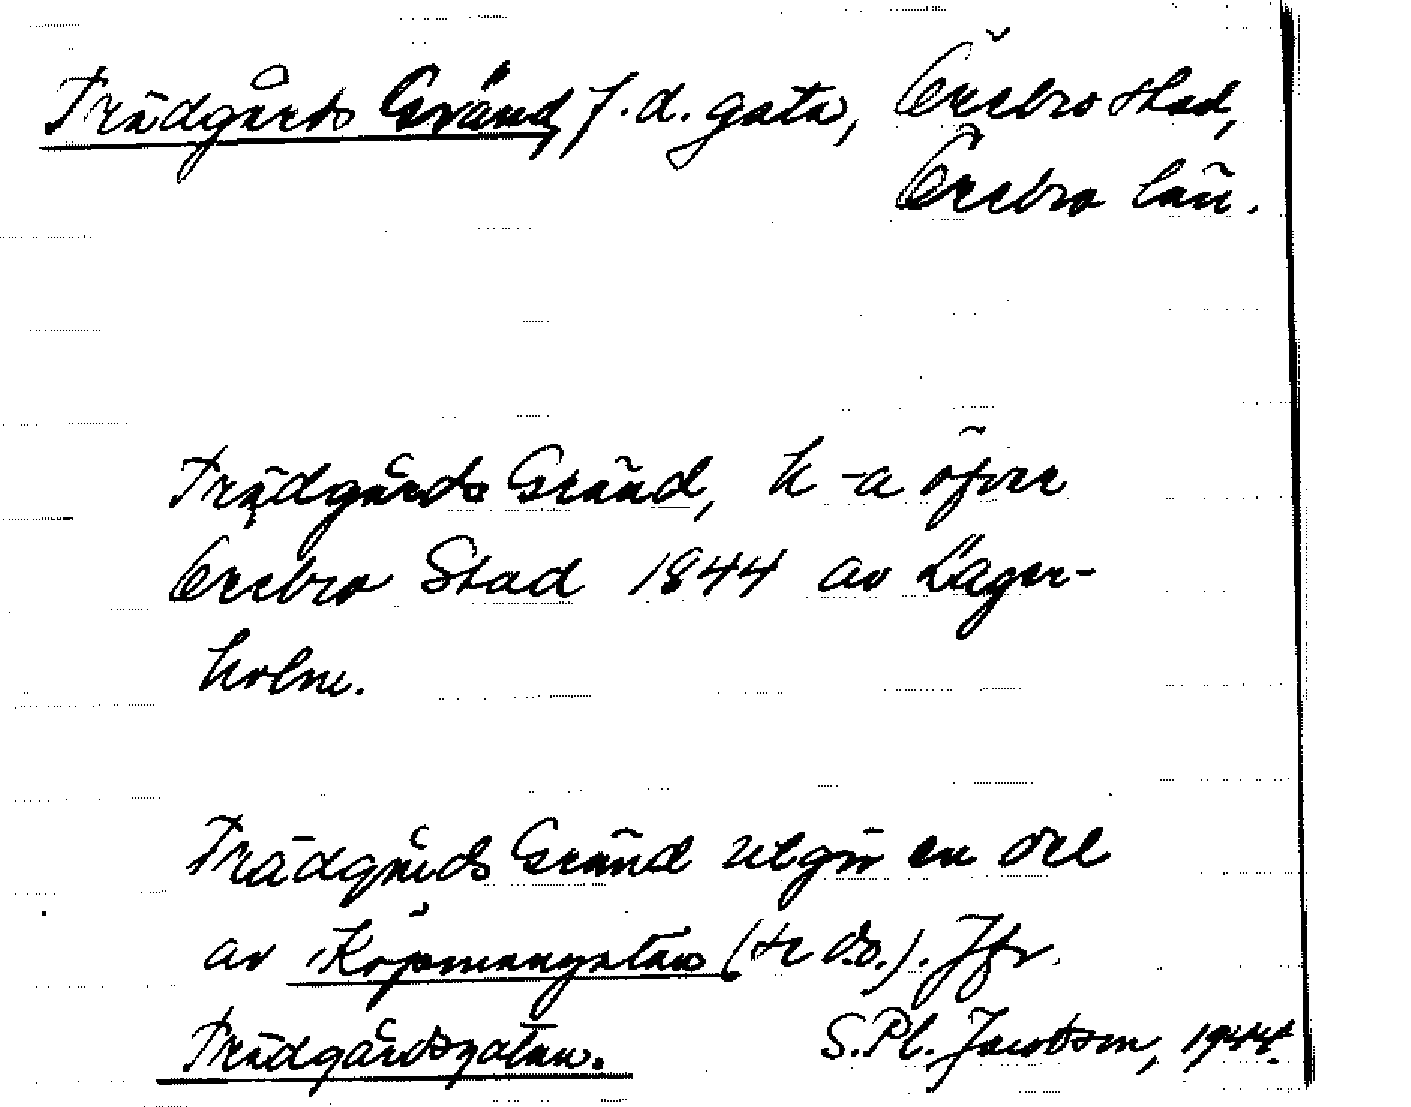 Trädgårds Gränd, f.d. gata, Örebro stad,
Örebro län.
Trädgårds Gränd, k-a öfver
Örebro Stad 1844 av Lager-
holm.
Trädgårds Gränd utgör en del
av Köpmangatan (se d.o.). Jfr.
Trädgårdsgatan. S. Pl. Jacobson, 1944.